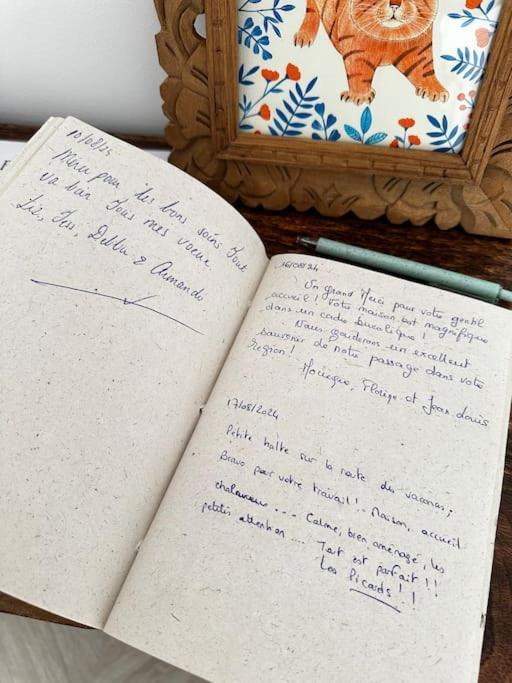 10/08/24
Merci pour les bons soins Tout
va bien Tous mes voeux
Liz, Tess, Debbie & Armando
16/08/24
Un grand Merci pour votre gentil
accueil! Votre maison est magnifique
dans un cadre bucolique!
Nous garderons un excellent
souvenir de notre passage dans votre
région!
Monique, Florige et Jean Louis
17/08/2024
Petite halte sur la route des vacances,
Bravo pour votre travail! Maison, accueil
chaleureux... Calme, bien aménagé, les
petites attention.... Tout est parfait!!
Les Picards!!